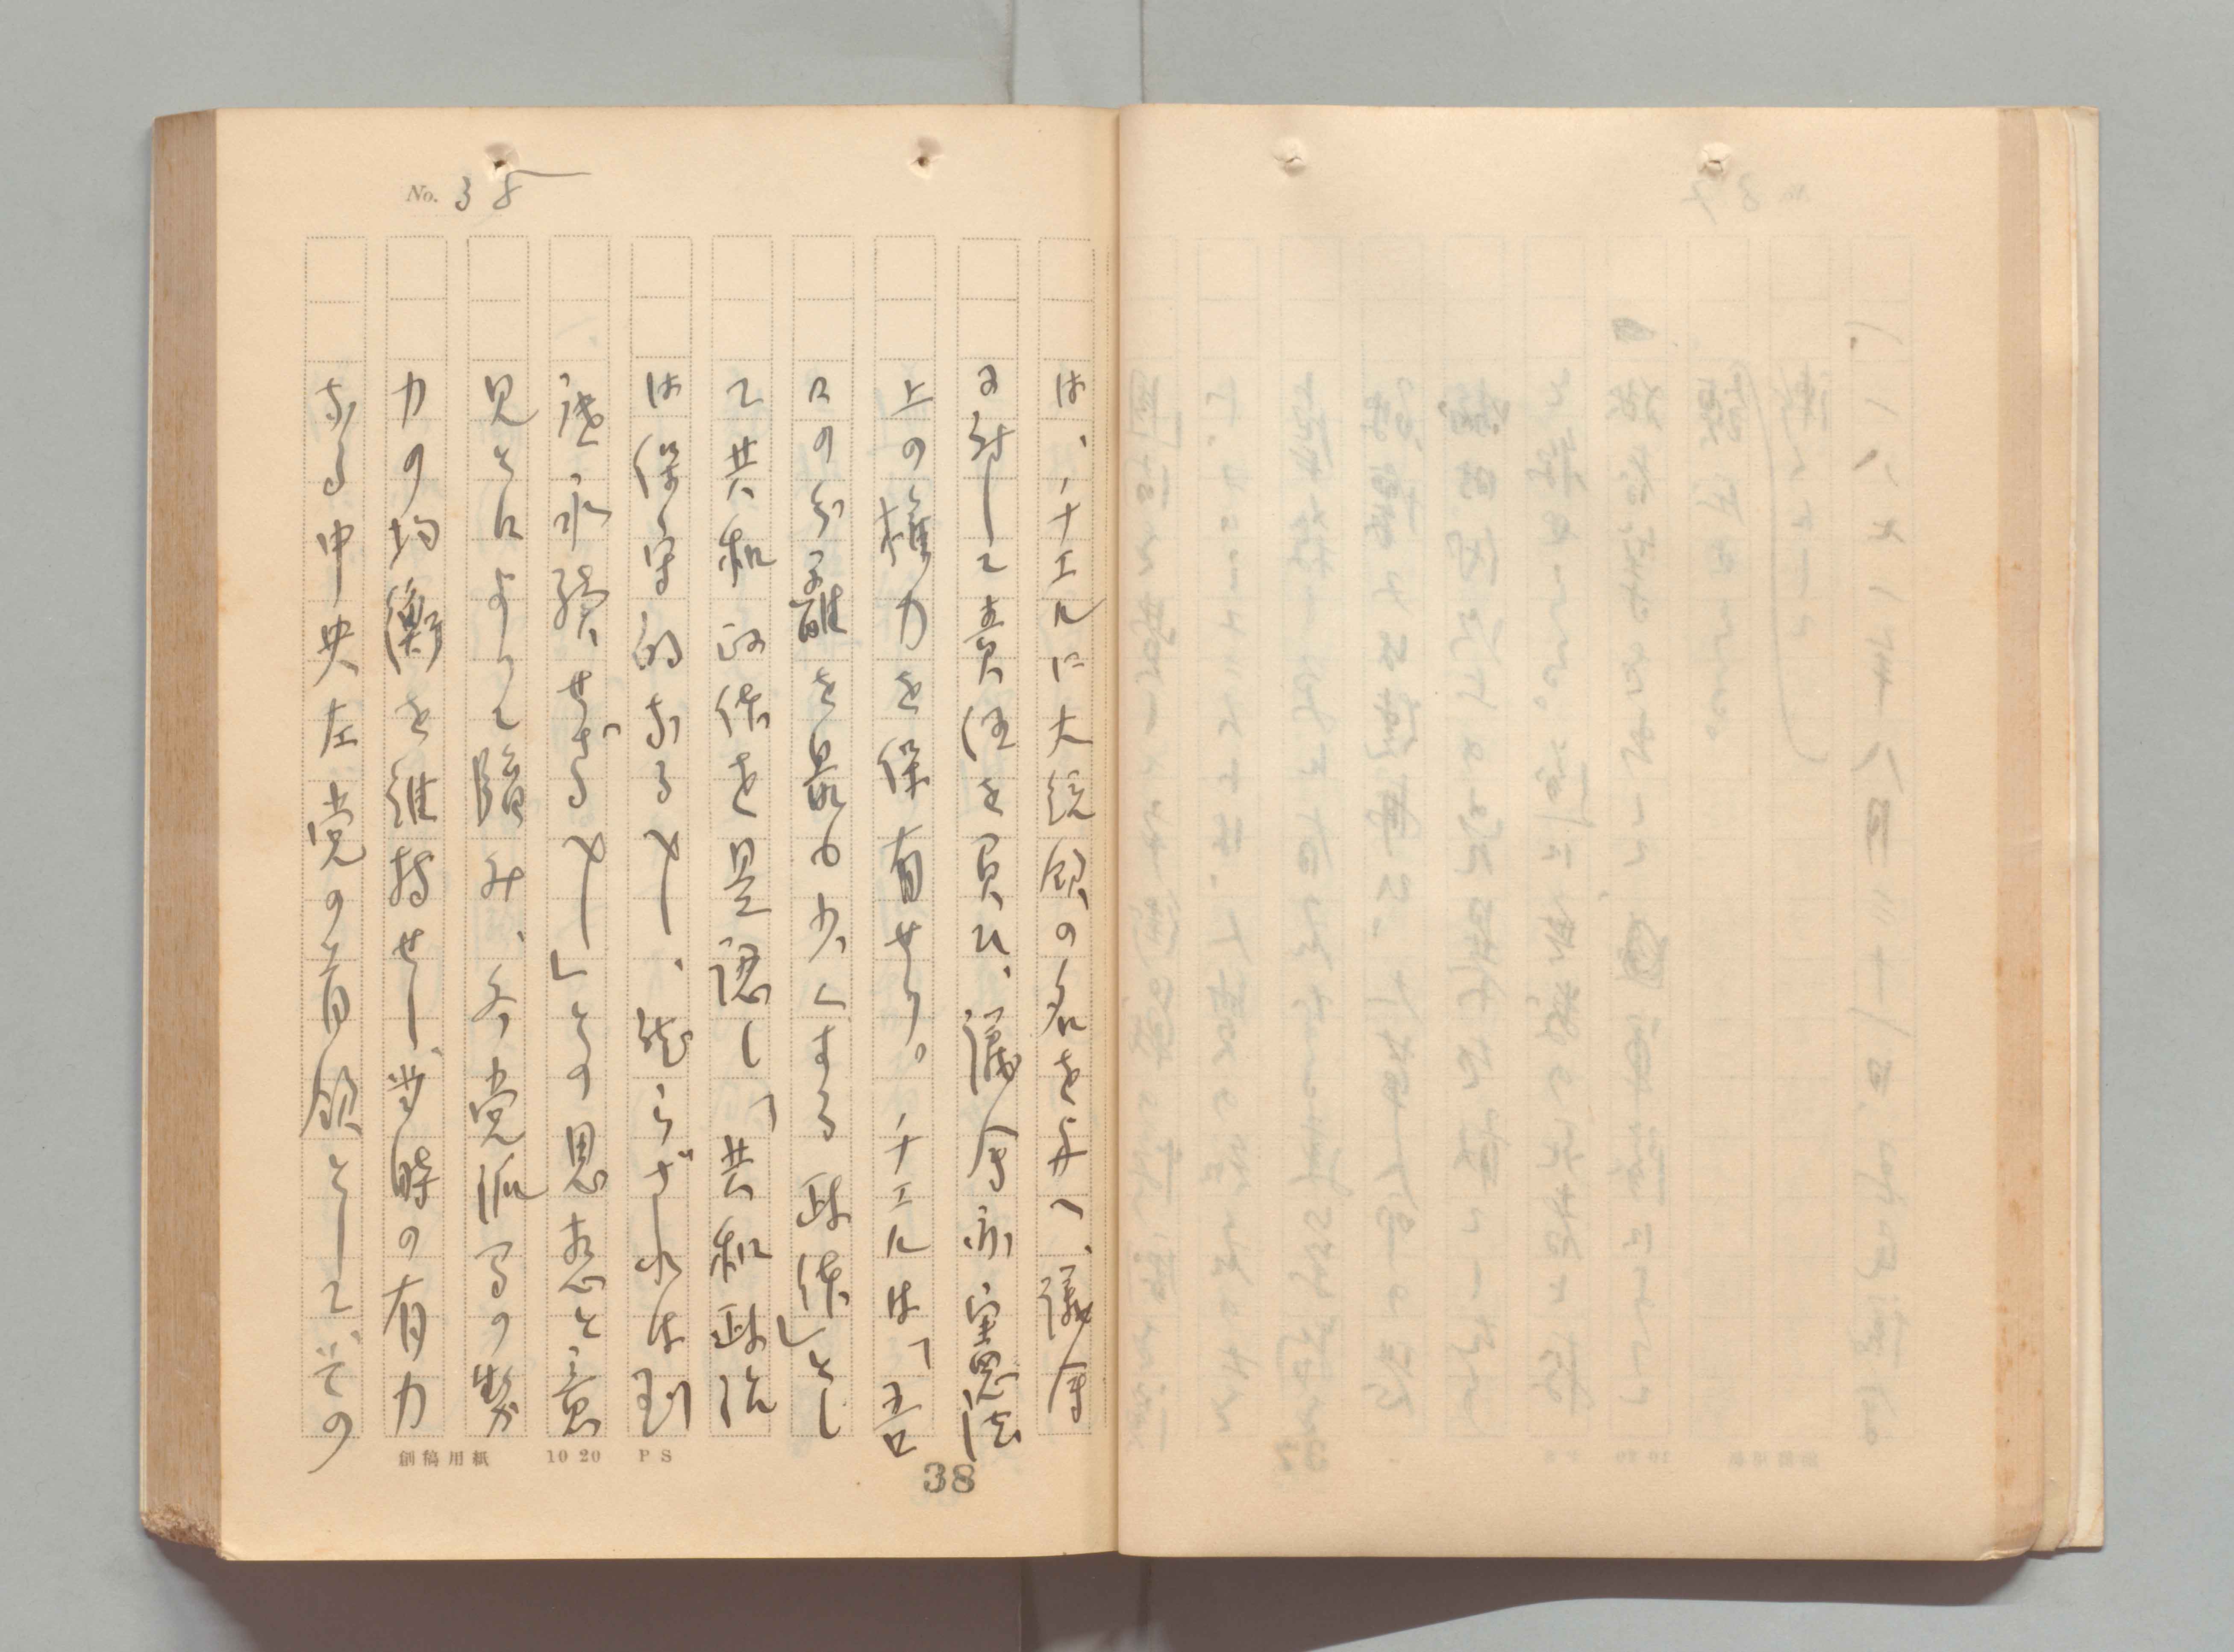 No. 38
は、チエルに大統領の名を与へ、議会
に対して責任を負ひ、議会亦憲法
上の権力を保有せり。チエルは「吾
ロの分離を最も少くする政体」とし
て共和政体を是認し、「共和政治
は保守的なるべし、然らざれば到
底永続せざるべし」との思想と意
見とによりて臨み、各党派間の勢
力の均衡を維持せし、当時の有力
なる中央左党の首領として、その
創稿用紙 10 20 PS
38